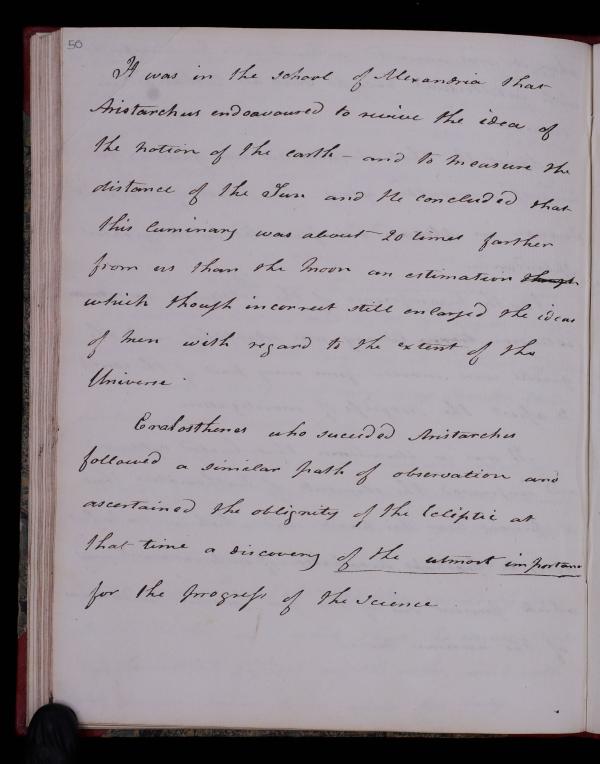 50
It was in the school of Alexandria that
Aristarchus endeavoured to revive the idea of
the motion of the earth – and to measure the
distance of the Sun and He concluded that
this luminary was about 20 times farther
from us than the Moon an estimation though
which though incorrect still enlarged the ideas
of men with regard to the extent of the
Universe.
Eratosthenes who succeeded Aristarchus
followed a similar path of observation and
ascertained the obliquity of the Ecliptic at
that time a discovery of the utmost importance
for the progress of the science